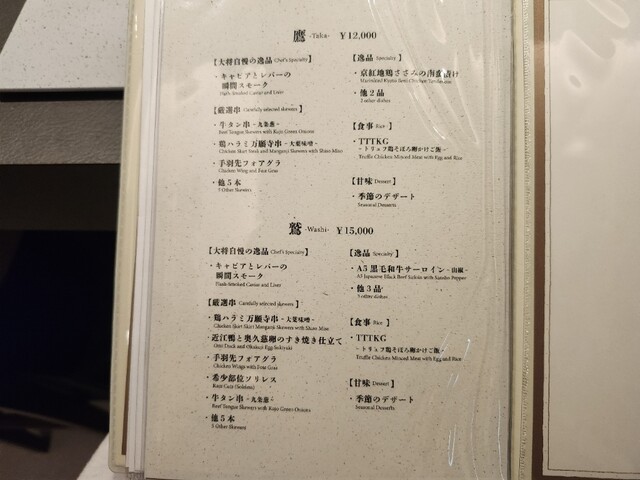 鷹 -Taka- ￥12,000
【大将自慢の逸品 Chef's Specialty】
・キャビアとレバーの
瞬間スモーク
Flash-Smoked Caviar and Liver
【厳選串 Carefully selected skewers】
・牛タン串 - 九条葱 -
Beef Tongue Skewers with Kujo Green Onions
・鶏ハラミ万願寺串 - 大葉味噌 -
Chicken Skirt Steak and Manganji Skewers with Shiso Miso
・手羽先フォアグラ
Chicken Wing and Foie Gras
・他5本
5 Other Skewers
【逸品 Specialty】
・京紅地鶏ささみの南蛮漬け
・他2品
2 other dishes
【食事 Rice】
・TTTKG
- トリュフ鶏そぼろ卵かけご飯 -
Truffle Chicken Minced Meat with Egg and Rice
【甘味 Dessert】
・季節のデザート
Seasonal Desserts
鷲 -Washi- ￥15,000
【大将自慢の逸品 Chef's Specialty】
・キャビアとレバーの
瞬間スモーク
Flash-Smoked Caviar and Liver
【厳選串 Carefully selected skewers】
・鶏ハラミ万願寺串 - 大葉味噌 -
Chicken Skirt Skirt Manganji Skewers with Shiso Miso
・近江鴨と奥久慈卵のすき焼き仕立て
Omi Duck and Okukuji Egg Sukiyaki
・手羽先フォアグラ
Chicken Wings with Foie Gras
・希少部位ソリレス
・牛タン串 - 九条葱 -
Beef Tongue Skewers with Kujo Green Onions
・他5本
5 Other Skewers
【逸品 Specialty】
・A5 黒毛和牛サーロイン - 山椒 -
A5 Japanese Black Beef Sirloin with Sansho Pepper
・他3品
3 other dishes
【食事 Rice】
・TTTKG
- トリュフ鶏そぼろ卵かけご飯 -
Truffle Chicken Minced Meat with Egg and Rice
【甘味 Dessert】
・季節のデザート
Seasonal Desserts